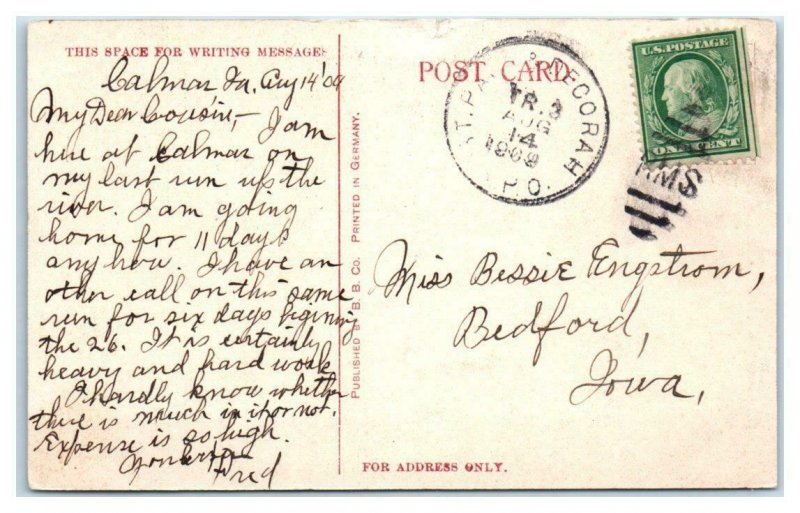 THIS SPACE FOR WRITING MESSAGES
Calmar Ia, Aug 14 '09
My Dear Cousin,- I am
here at Calmar on
my last run up the
river. I am going
home for 11 days
anyhow. I have an
other call on this same
run for six days begining
the 26. It is certainly
heavy and hard work
I hardly know whether
there is much in it or not.
Expense is so high.
Fred
PUBLISHED BY B. B. CO. PRINTED IN GERMANY.
POST CARD
ST. PA & DECORAH
TR. 3
AUG
14
1909
R.P.O.
U.S. POSTAGE
ONE CENT
RMS
Miss Bessie Engstrom,
Bedford,
Iowa,
FOR ADDRESS ONLY.